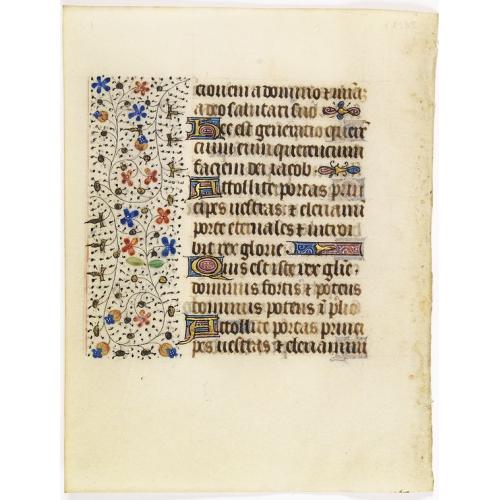 ctionem a domino & mia
a deo salutari suo
Hec est generatio querē
cium eum querencium
faciem dei iacob
Attollite portas prin
cipes vestras & elevami
porte eternales & introi
bit rex glorie
Quis est iste rex glīe
dominus fortis & potens
dominus potens ī plio
Attollite portas princi
pes vestras & elevamini